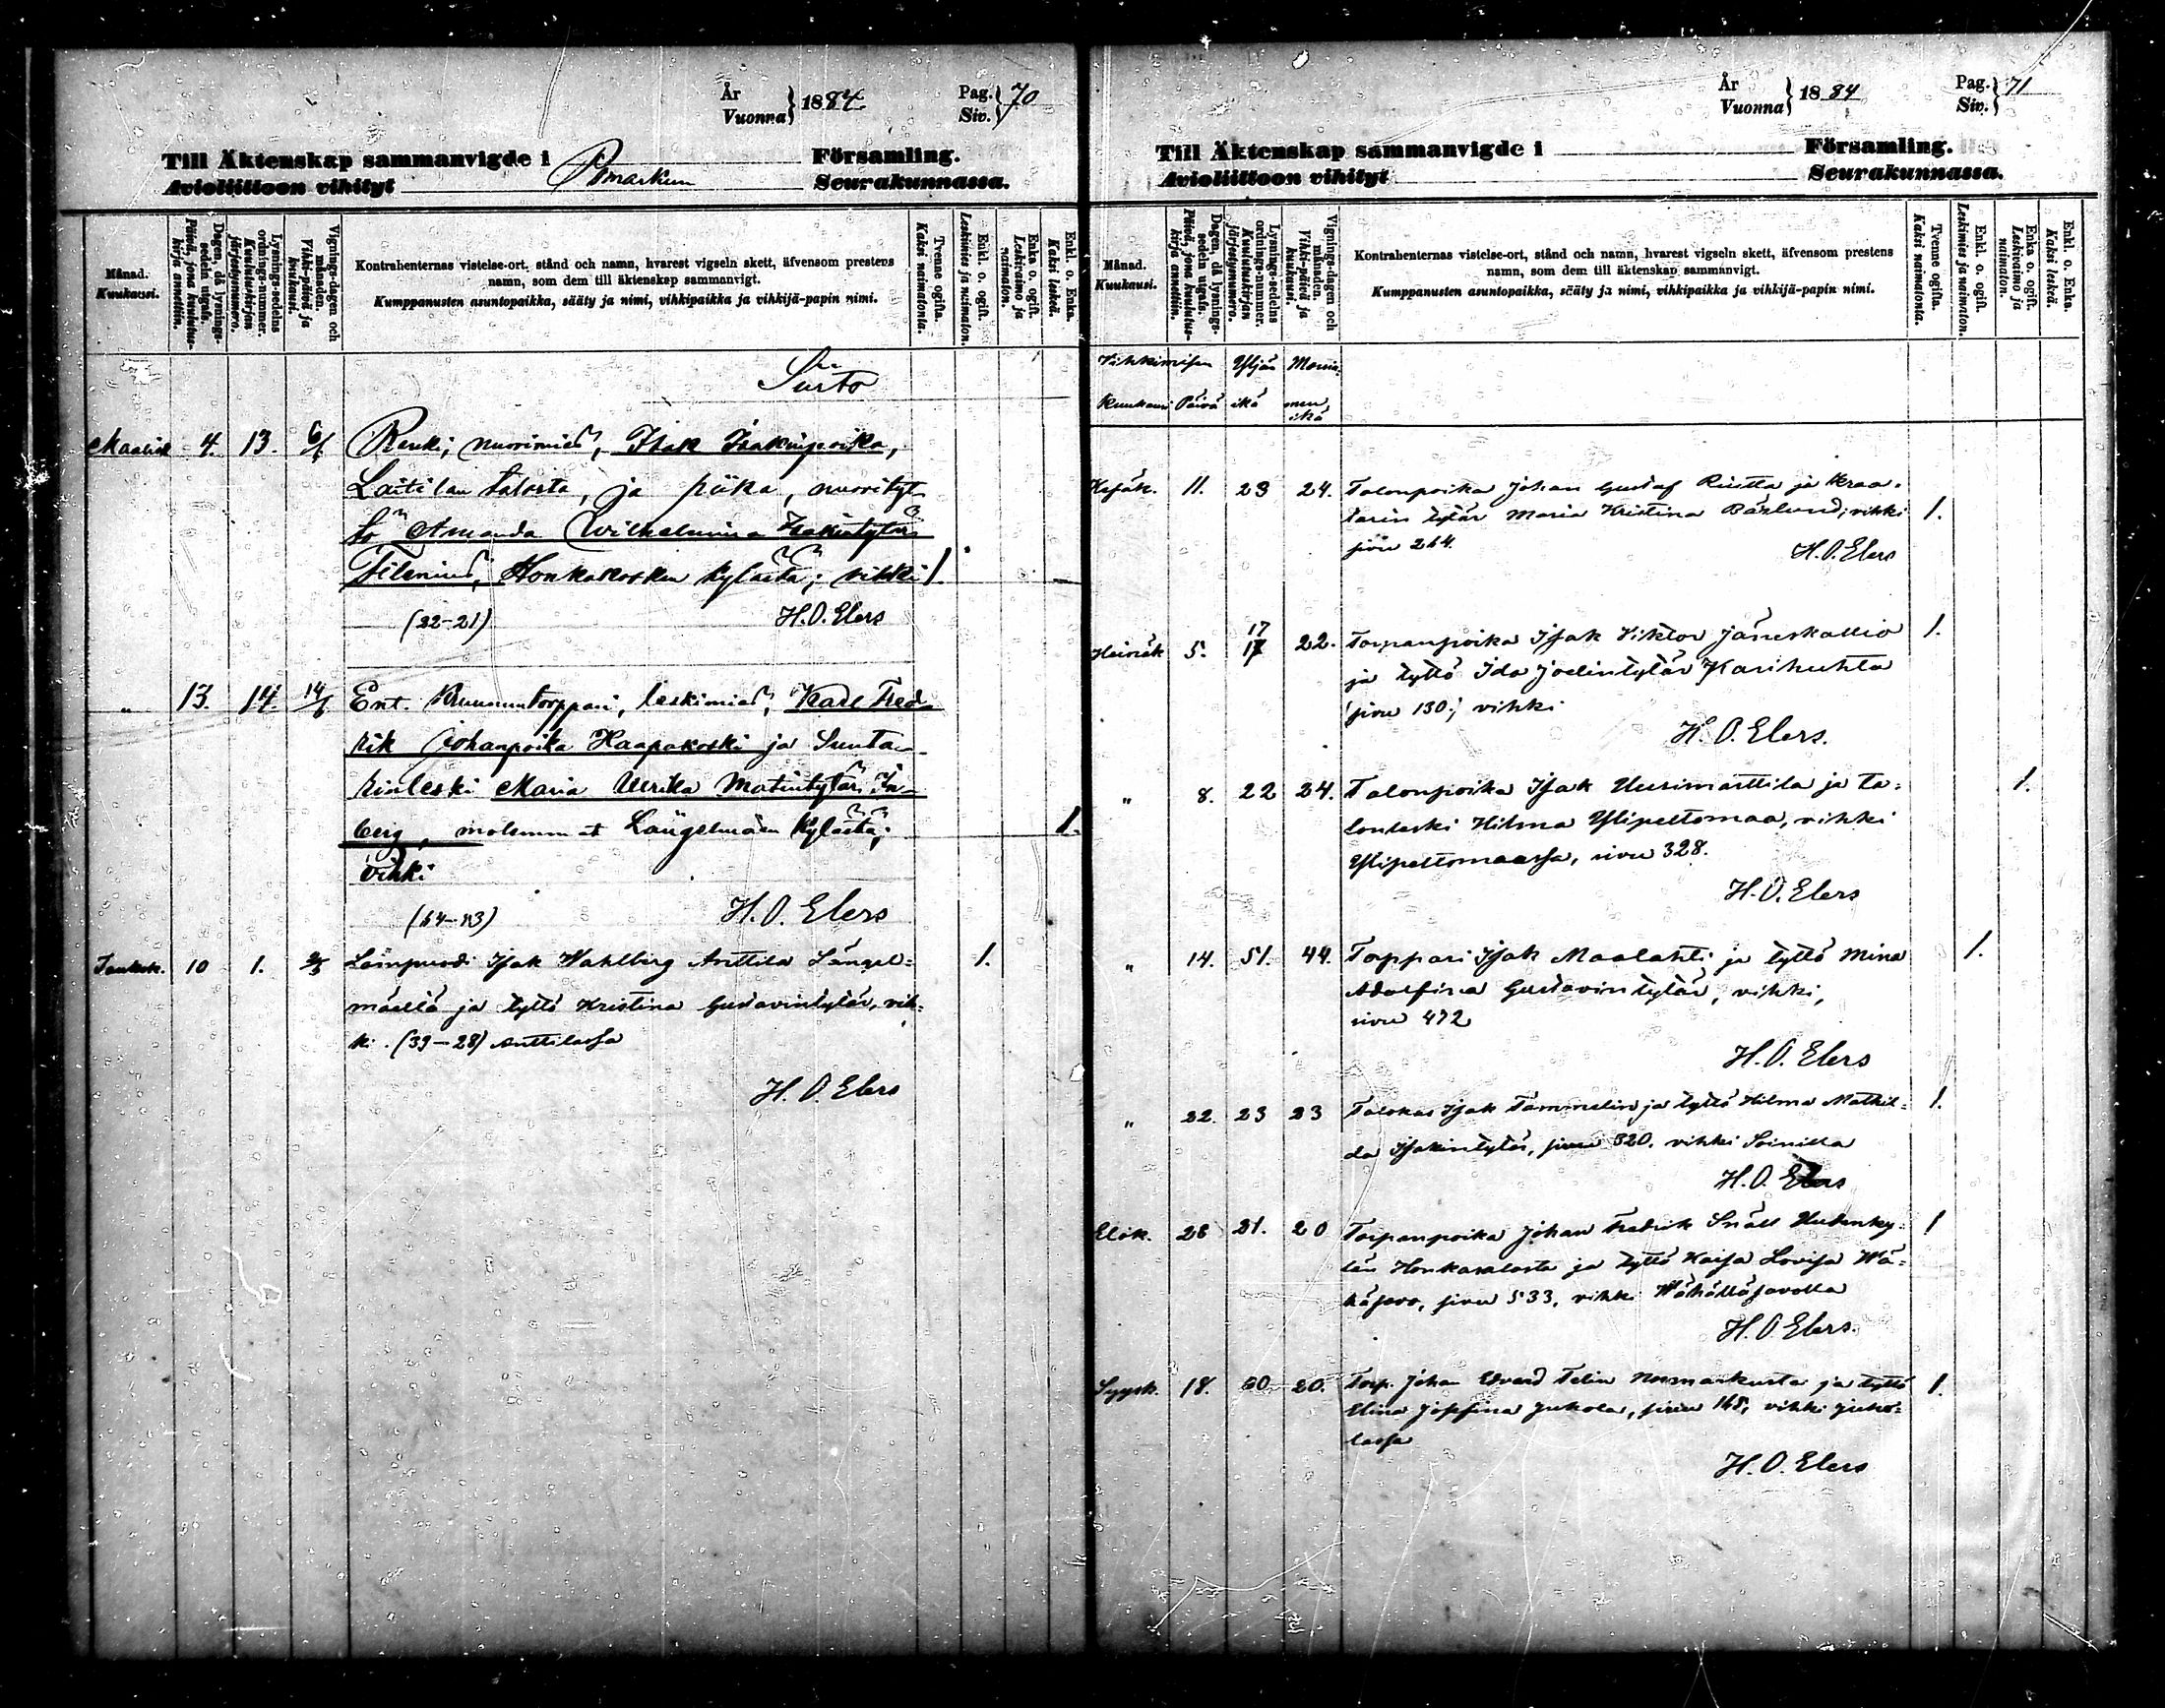 År
Vuonna } 1884. Pag.
Siv. } 70
Till Äktenskap sammanvigde i Pomarkun Församling.
Avioliittoon vihityt Seurakunnassa.
Månad.
Kuukausi.
Dagen, då lysnings-
sedeln utgafs.
Päivä, jona kuulutus-
kirja annettiin.
Lysnings-sedelns
ordnings-nummer.
Kuulutuskirjan
järjestysnumero.
Vignings-dagen och
månaden.
Vihki-päivä ja
kuukausi.
Kontrahenternas vistelse-ort, stånd och namn, hvarest vigseln skett, äfvensom prestens
namn, som dem till äktenskap sammanvigt.
Kumppanusten asuntopaikka, sääty ja nimi, vihkipaikka ja vihkijä-papin nimi.
Tvenne ogifta.
Kaksi naimatonta.
Enkl. o. ogift.
Leskimies ja naimaton.
Enka o. ogift.
Leskivaimo ja
naimaton.
Enkl. o. Enka.
Kaksi leskeä.
Siirto
Maalisk 4. 13. Renki, nuorimies, Isak Isakinpoika,
Laitilan talosta, ja piika, nuorityt-
tö Amanda Wilhelmina Isakintytär
Filenius, Honkakosken kylästä; vihki 1.
(22-21) H. O. Elers
" 13. 14. Ent. Kruununtorppari, leskimies, Karl Fred-
rik Johanpoika Haapakoski ja Suuta-
rinleski Maria Ulrika Matintytär
berg, molemmat Längelmäen kylästä; 1.
vihki
H. O. Elers
Toukok. 10 1. Isak Wahlberg Anttila Längel-
mäellä ja tyttö Kristina Gustavintytär, vih- 1.
ki. (39-28) Anttilassa
H. O. Elers
År
Vuonna } 1884 Pag.
Siv. } 71
Till Äktenskap sammanvigde i Församling.
Avioliittoon vihityt Seurakunnassa.
Månad.
Kuukausi.
Dagen, då lysnings-
sedeln utgafs.
Päivä, jona kuulutus-
kirja annettiin.
Lysnings-sedelns
ordnings-nummer.
Kuulutuskirjan
järjestysnumero.
Vignings-dagen och
månaden.
Vihki-päivä ja
kuukausi.
Kontrahenternas vistelse-ort, stånd och namn, hvarest vigseln skett, äfvensom prestens
namn, som dem till äktenskap sammanvigt.
Kumppanusten asuntopaikka, sääty ja nimi, vihkipaikka ja vihkijä-papin nimi.
Tvenne ogifta.
Kaksi naimatonta.
Enkl. o. ogift.
Leskimies ja naimaton.
Enka o. ogift.
Leskivaimo ja
naimaton.
Enkl. o. Enka.
Kaksi leskeä.
Vihkimisen Yljän Morsia-
Kuukausi Päivä ikä men
ikä
Kesäk. 11. 23 24. Talonpoika Johan Gustaf ja Kraa-
tarin tytär Maria Kristina Bäklund; vihki 1.
sivu 264. H. O. Elers
Heinäk 5. 17 22. Torpanpoika Isak Viktor Jäneskallio 1.
ja tyttö Ida Joelintytär Karihuhta
sivu 130; vihki
H. O. Elers.
" 8. 22 24. Talonpoika Isak Uusimarttila ja ta- 1.
lonleski Hilma Ylipeltomaa, vihki
Ylipeltomaassa, sivu 328.
H. O. Elers
" 14. 51. 44. Torppari Isak Maalahti ja tyttö Mina 1.
Adolfina Gustavintytär, vihki,
sivu 472
H. O. Elers
" 22. 23 23 Isak Tammelin ja tyttö Hilma Mathil- 1.
da Isakintytär, sivu 320. vihki Soinilla
H. O. Elers
Elok. 28 21. 20 Torpanpoika Johan Fredrik Snäll Uudenky- 1
län Honkasalosta ja tyttö Kaisa Lovisa Wä-
häsavo, sivu 533, vihki Wähälläsavolla
H. O Elers.
Syysk. 18. 20. Torp. Johan Edvard Felin Normarkusta ja tyttö 1.
Elina Josefina Jukola, sivu 165, vihki Juko-
lassa
H. O. Elers